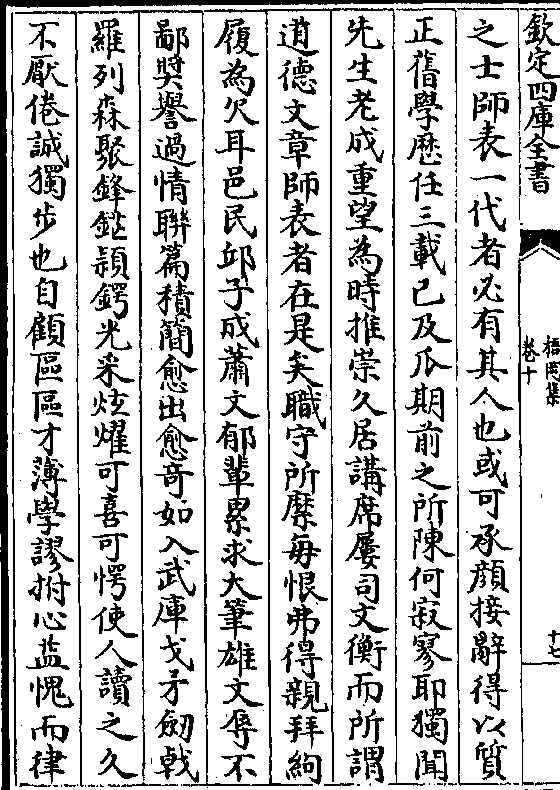 欽定四庫全書
卷十
之士師表一代者必有其人也或可承顔接辭得以質
正舊學歴任三載已及瓜期前之所陳何寂寥耶獨聞
先生老成重望為時推崇久居講席屢司文衡而所謂
道德文章師表者在是矣職守所縻毎恨弗得親拜絇
履為欠耳邑民邱子成蕭文郁輩累求大筆雄文辱不
鄙奬譽過情聯篇積簡愈出愈竒如入武庫戈矛劒戟
羅列森聚鋒鋩頴鍔光采炫燿可喜可愕使人讀之久
不厭倦誠獨步也自顧區區才薄學謬拊心益愧而律